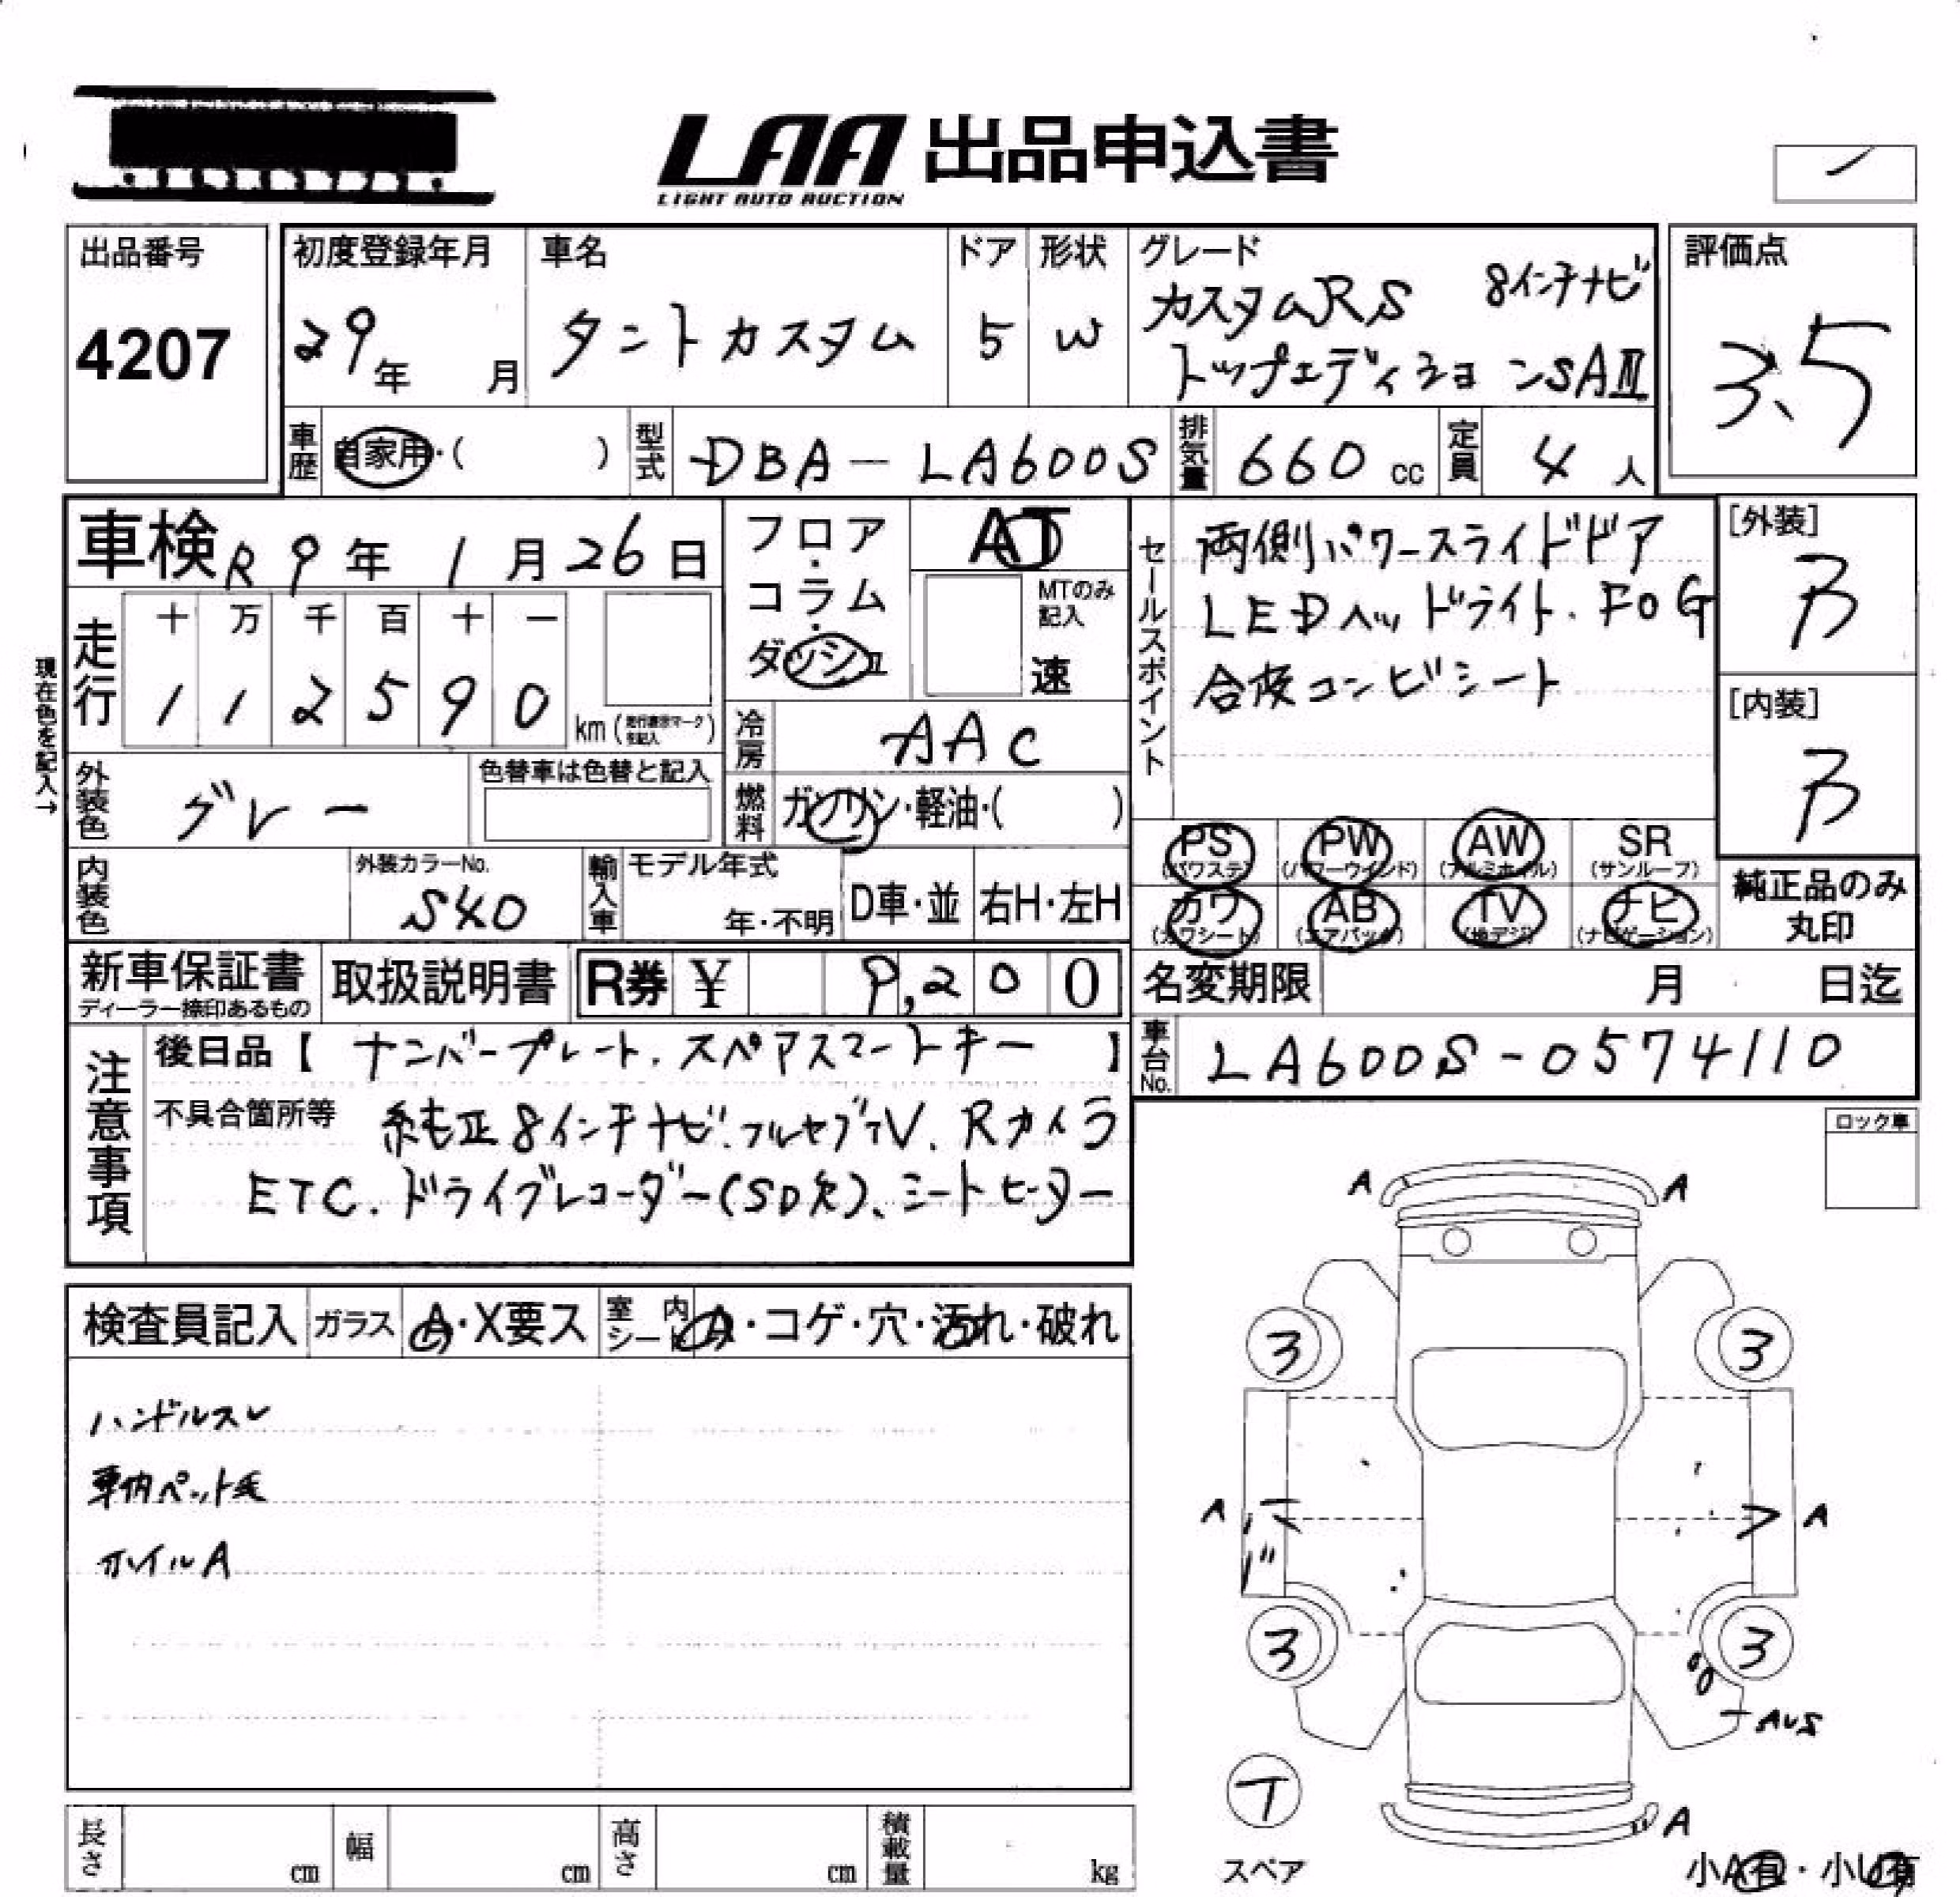 LAA 出品申込書
LIGHT AUTO AUCTION
出品番号
4207
初度登録年月
29年 月
車名
タントカスタム
ドア
5
形状
W
グレード
カスタムRS 8インチナビ
トップエディションSAⅢ
評価点
3.5
車歴 自家用・( )
型式 DBA-LA600S
排気量 660 cc
定員 4 人
車検 R9年 1月26日
現在色を記入→
走行
十 万 千 百 十 一
1 1 2 5 9 0
km (走行表示マークを記入)
フロア・コラム・ダッシュ
AT
MTのみ記入
速
冷房 AAC
燃料 ガソリン・軽油・( )
外装色 グレー
色替車は色替と記入
内装色
外装カラーNo.
S40
輸入車
モデル年式
年・不明
D車・並
右H・左H
セールスポイント
両側パワースライドドア
LEDヘッドライト.FOG
合皮コンビシート
[外装]
B
[内装]
B
PS (パワステ)
PW (パワーウインド)
AW (アルミホイル)
SR (サンルーフ)
カワ (カワシート)
AB (エアバック)
TV (地デジ)
ナビ (ナビゲーション)
純正品のみ丸印
新車保証書
ディーラー捺印あるもの
取扱説明書
R券 ¥ 9,200
名変期限 月 日迄
車台No. LA600S-0574110
注意事項
後日品【 ナンバープレート.スペアスマートキー 】
不具合箇所等 純正8インチナビ.フルセグTV.Rカメラ
ETC.ドライブレコーダー(SD欠)、シートヒーター
ロック車
検査員記入
ガラス A・X要ス
室内シート A・コゲ・穴・汚れ・破れ
ハンドルスレ
車内ペット毛
ホイルA
A A
3 3
A A
3 3
AUS
T
スペア
A
小A有・小U有
長さ cm
幅 cm
高さ cm
積載量 kg